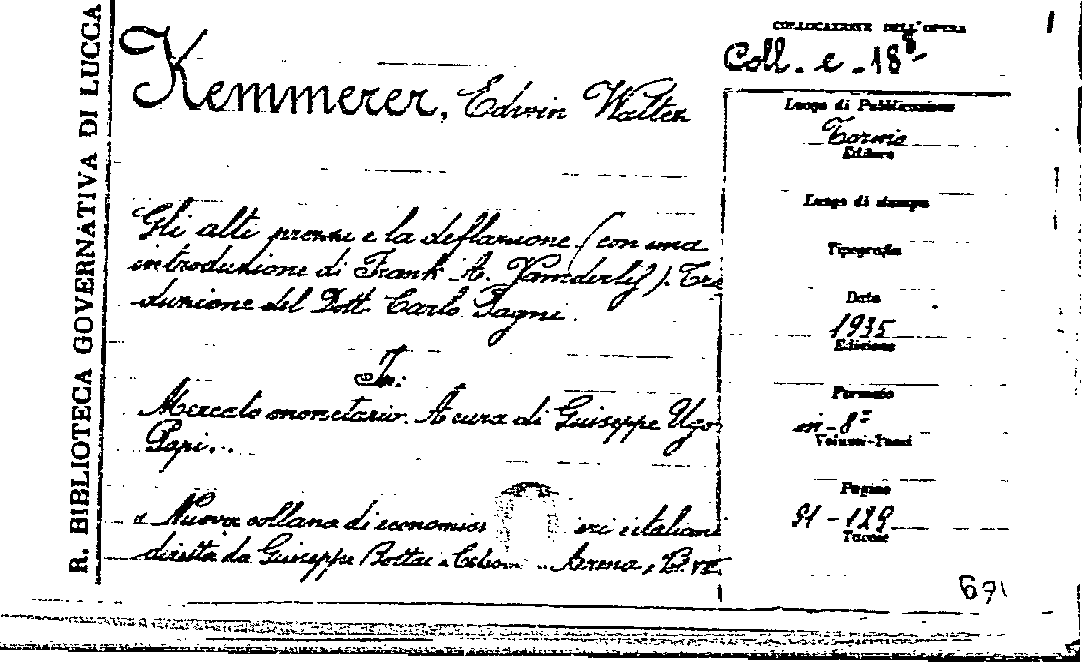 R. BIBLIOTECA GOVERNATIVA DI LUCCA
Kemmerer, Edwin Walter
Gli alti prezzi e la deflazione (con una
introduzione di Frank A. Vamderlif). Tra
duzione del Dott. Carlo Pagni.
In:
Mercato monetario. A cura di Giuseppe Ugo
Papi...
« Nuova collana di economis eri e italiani
diretta da Giuseppe Bottai e Celes Arena, B. VIII
COLLOCAZIONE DELL'OPERA
Coll. e. 18
Luogo di Pubblicazione
Torino
Editore
Luogo di stampa
Tipografia
Data
1935
Edizione
Formato
in-8°
Volumi-Parti
Pagine
91-129
Tavole